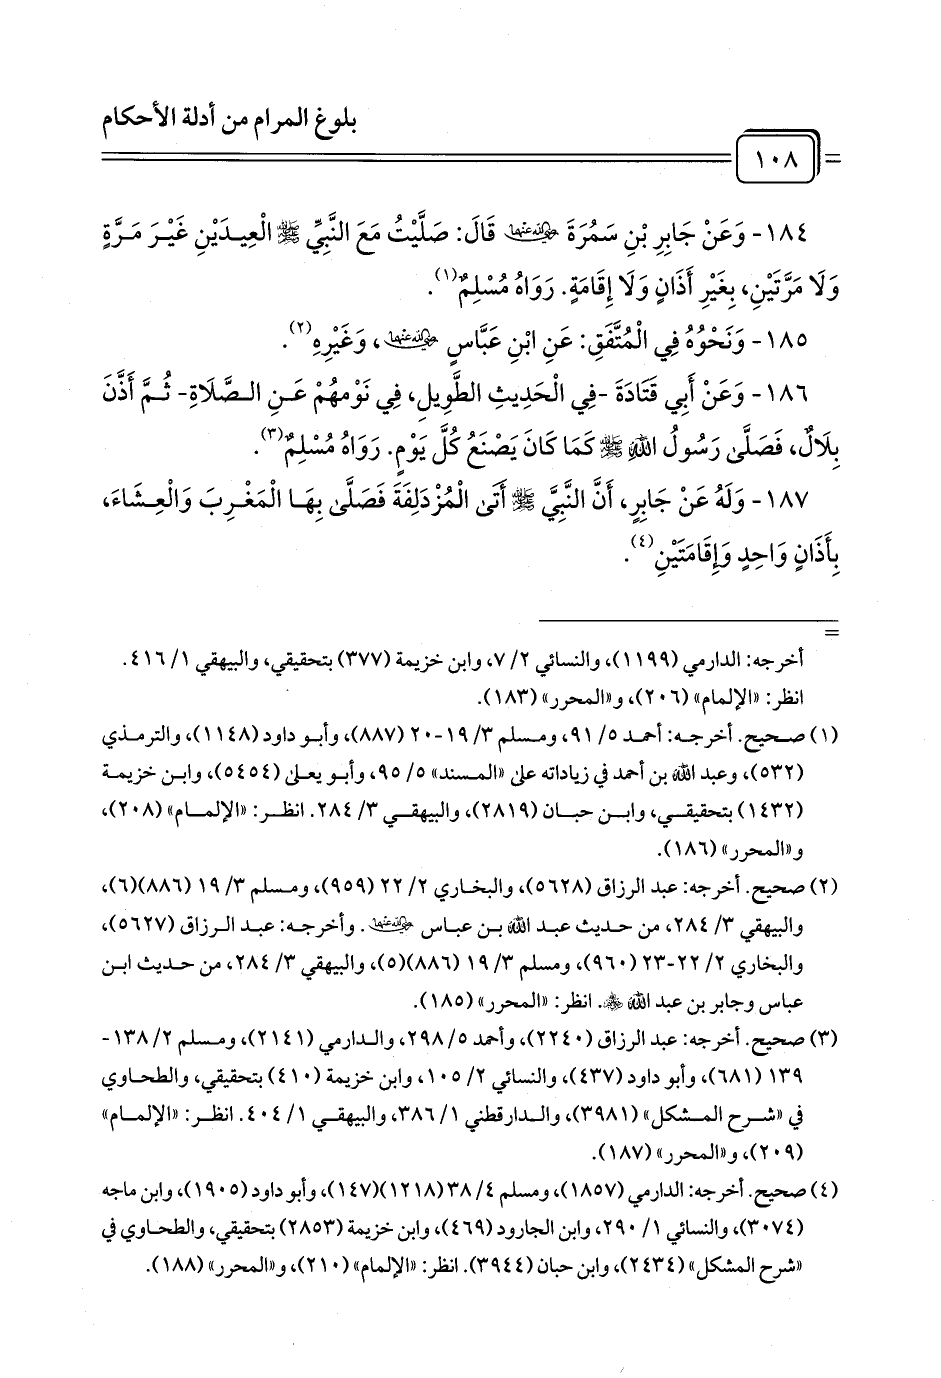 بلوغ المرام من أدلة الأحكام
١٠٨
١٨٤- وَعَنْ جَابِرِ بْنِ سَمُرَةَ رضي الله عنهما قَالَ: صَلَّيْتُ مَعَ النَّبِيِّ ﷺ الْعِيدَيْنِ غَيْرَ مَرَّةٍ
وَلَا مَرَّتَيْنِ، بِغَيْرِ أَذَانٍ وَلَا إِقَامَةٍ. رَوَاهُ مُسْلِمٌ(١).
١٨٥- وَنَحْوُهُ فِي الْمُتَّفَقِ: عَنِ ابْنِ عَبَّاسٍ رضي الله عنهما، وَغَيْرِهِ(٢).
١٨٦- وَعَنْ أَبِي قَتَادَةَ -فِي الْحَدِيثِ الطَّوِيلِ، فِي نَوْمِهُمْ عَنِ الصَّلَاةِ- ثُمَّ أَذَّنَ
بِلَالٌ، فَصَلَّى رَسُولُ اللهِ ﷺ كَمَا كَانَ يَصْنَعُ كُلَّ يَوْمٍ. رَوَاهُ مُسْلِمٌ(٣).
١٨٧- وَلَهُ عَنْ جَابِرٍ، أَنَّ النَّبِيَّ ﷺ أَتَى الْمُزْدَلِفَةَ فَصَلَّى بِهَا الْمَغْرِبَ وَالْعِشَاءَ،
بِأَذَانٍ وَاحِدٍ وَإِقَامَتَيْنِ(٤).
=
أخرجه: الدارمي (١١٩٩)، والنسائي ٢/ ٧، وابن خزيمة (٣٧٧) بتحقيقي، والبيهقي ١/ ٤١٦.
انظر: «الإلمام» (٢٠٦)، و«المحرر» (١٨٣).
(١) صحيح. أخرجه: أحمد ٥/ ٩١، ومسلم ٣/ ١٩-٢٠ (٨٨٧)، وأبو داود (١١٤٨)، والترمذي
(٥٣٢)، وعبد الله بن أحمد في زياداته على «المسند» ٥/ ٩٥، وأبو يعلى (٥٤٥٤)، وابن خزيمة
(١٤٣٢) بتحقيقي، وابن حبان (٢٨١٩)، والبيهقي ٣/ ٢٨٤. انظر: «الإلمام» (٢٠٨)،
و«المحرر» (١٨٦).
(٢) صحيح. أخرجه: عبد الرزاق (٥٦٢٨)، والبخاري ٢/ ٢٢ (٩٥٩)، ومسلم ٣/ ١٩ (٨٨٦)(٦)،
والبيهقي ٣/ ٢٨٤، من حديث عبد الله بن عباس رضي الله عنهما. وأخرجه: عبد الرزاق (٥٦٢٧)،
والبخاري ٢/ ٢٢-٢٣ (٩٦٠)، ومسلم ٣/ ١٩ (٨٨٦)(٥)، والبيهقي ٣/ ٢٨٤، من حديث ابن
عباس وجابر بن عبد الله. انظر: «المحرر» (١٨٥).
(٣) صحيح. أخرجه: عبد الرزاق (٢٢٤٠)، وأحمد ٥/ ٢٩٨، والدارمي (٢١٤١)، ومسلم ٢/ ١٣٨-
١٣٩ (٦٨١)، وأبو داود (٤٣٧)، والنسائي ٢/ ١٠٥، وابن خزيمة (٤١٠) بتحقيقي، والطحاوي
في «شرح المشكل» (٣٩٨١)، والدارقطني ١/ ٣٨٦، والبيهقي ١/ ٤٠٤. انظر: «الإلمام»
(٢٠٩)، و«المحرر» (١٨٧).
(٤) صحيح. أخرجه: الدارمي (١٨٥٧)، ومسلم ٤/ ٣٨ (١٢١٨)(١٤٧)، وأبو داود (١٩٠٥)، وابن ماجه
(٣٠٧٤)، والنسائي ١/ ٢٩٠، وابن الجارود (٤٦٩)، وابن خزيمة (٢٨٥٣) بتحقيقي، والطحاوي في
«شرح المشكل» (٢٤٣٤)، وابن حبان (٣٩٤٤). انظر: «الإلمام» (٢١٠)، و«المحرر» (١٨٨).